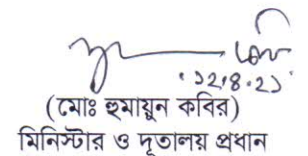 ১২.৪.২১
(মোঃ হুমায়ুন কবির)
মিনিস্টার ও দূতালয় প্রধান